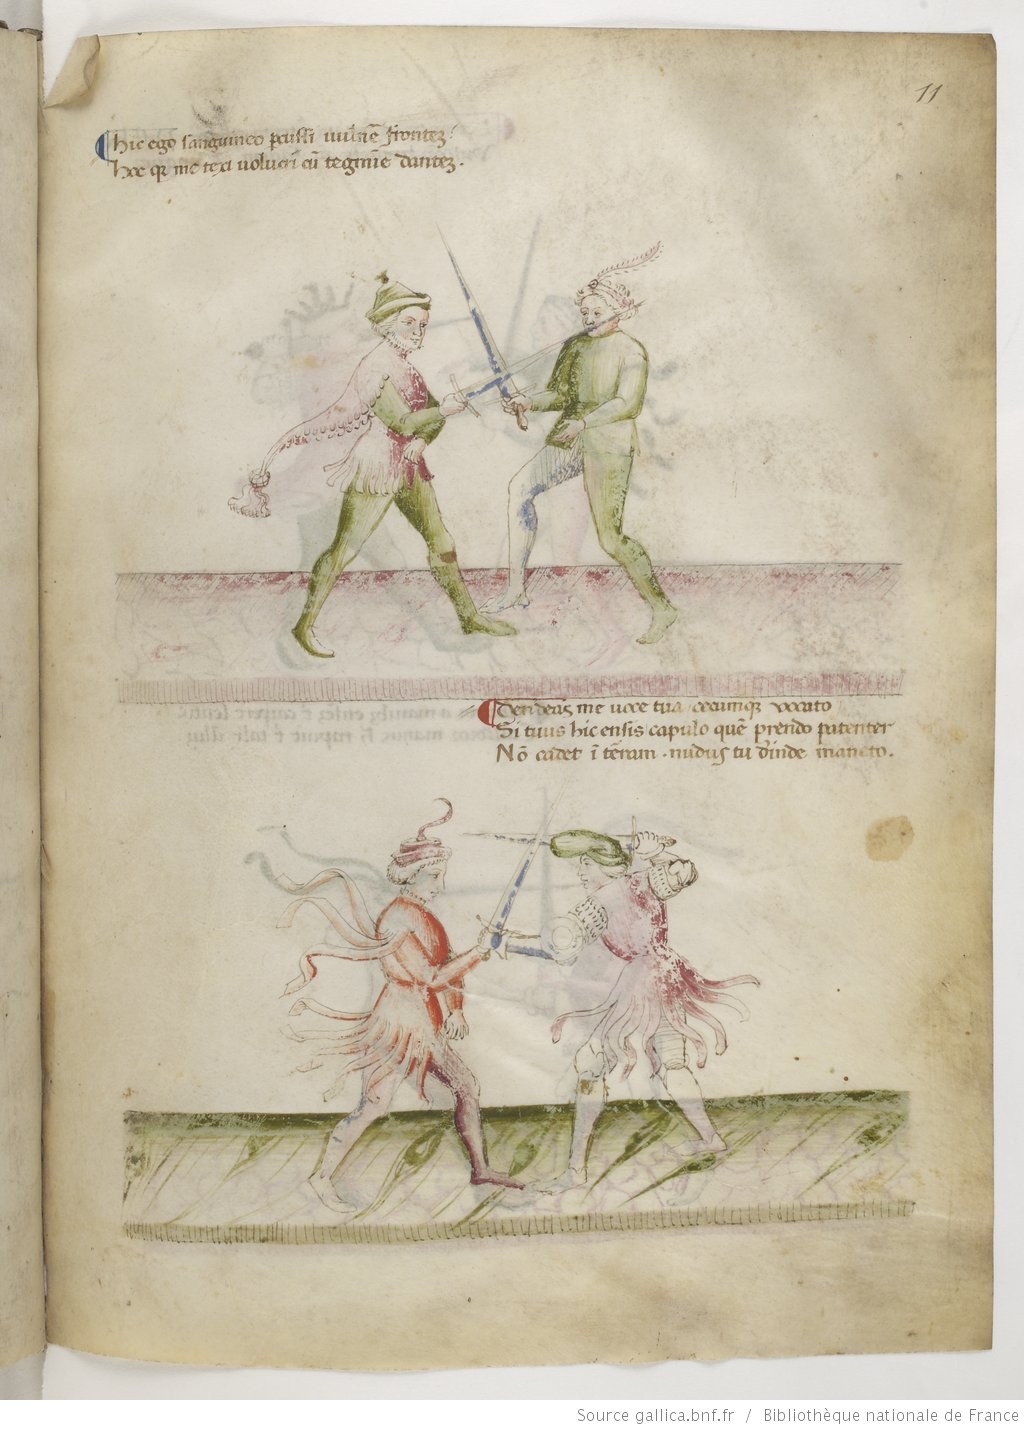 11
hic ego sanguineo pcussi vulnē frontez.
hoc qz me texi volucri cū tegmīe dantez.
Derideas me voce tua cecumqz vocato
Si tuus hic ensis capulo quē prendo patenter
Nō cadet ī terram . nudus tu deinde maneto.
Source gallica.bnf.fr / Bibliothèque nationale de France